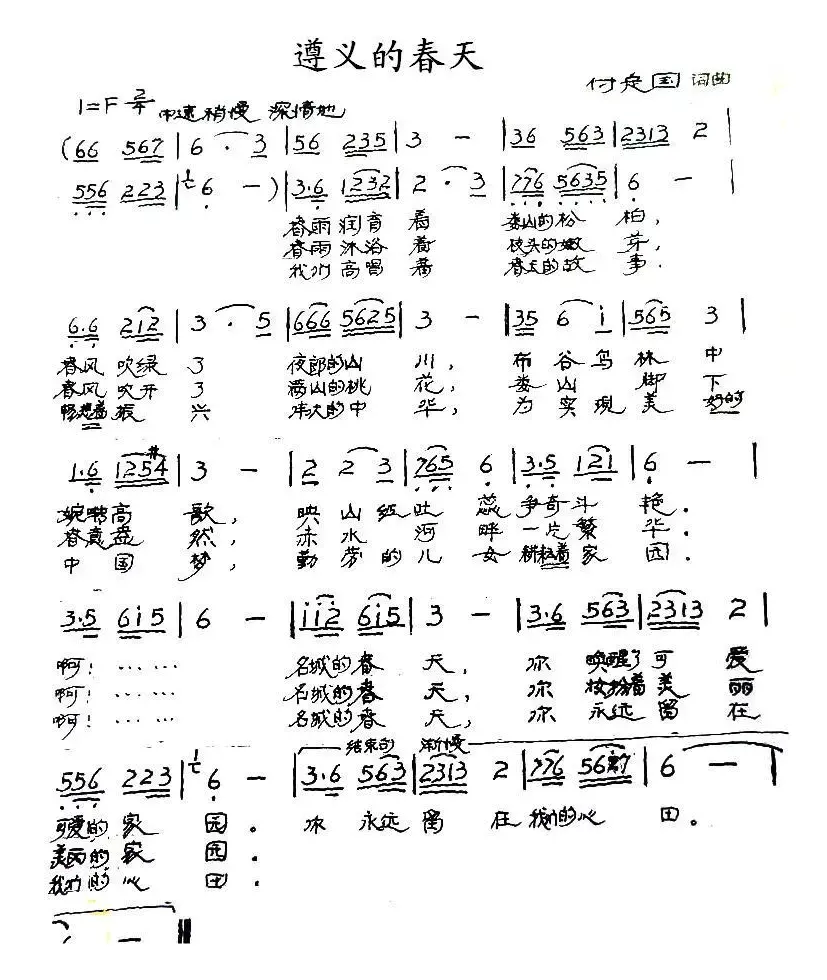 遵义的春天
付定国 词曲
1=F 2/4 中速稍慢 深情地
(66 567 | 6 · 3 | 56 235 | 3 - | 36 563 | 2313 2 |
556 223 | 6 -) | 3·6 1232 | 2 · 3 | 776 5635 | 6 - |
春雨润育着 娄山的松柏,
春雨沐浴着 枝头的嫩芽,
我们高唱着 春天的故事.
6·6 212 | 3 · 5 | 666 5625 | 3 - | 35 6 i | 565 3 |
春风吹绿了 夜郎的山川, 布谷鸟林中
春风吹开了 满山的桃花, 娄山脚下
畅想着振兴 伟大的中华, 为实现美好的
1·6 1254 | 3 - | 2 2 3 | 765 6 | 3·5 121 | 6 - |
婉啭高歌, 映山红吐蕊争奇斗艳.
春意盎然, 赤水河畔一片繁华.
中国梦, 勤劳的儿女耕耘着家园.
3·5 6i5 | 6 - | ii2 6i5 | 3 - | 3·6 563 | 2313 2 |
啊! …… 名城的春天, 你唤醒了可爱
啊! …… 名城的春天, 你妆扮着美丽
啊! …… 名城的春天, 你永远留在
结束句 渐慢
556 223 | 6 - | 3·6 563 | 2313 2 | 776 56 | 6 - |
可爱的家园。 你永远留在我们的心田。
美丽的家园.
我们的心田.
6 - ‖